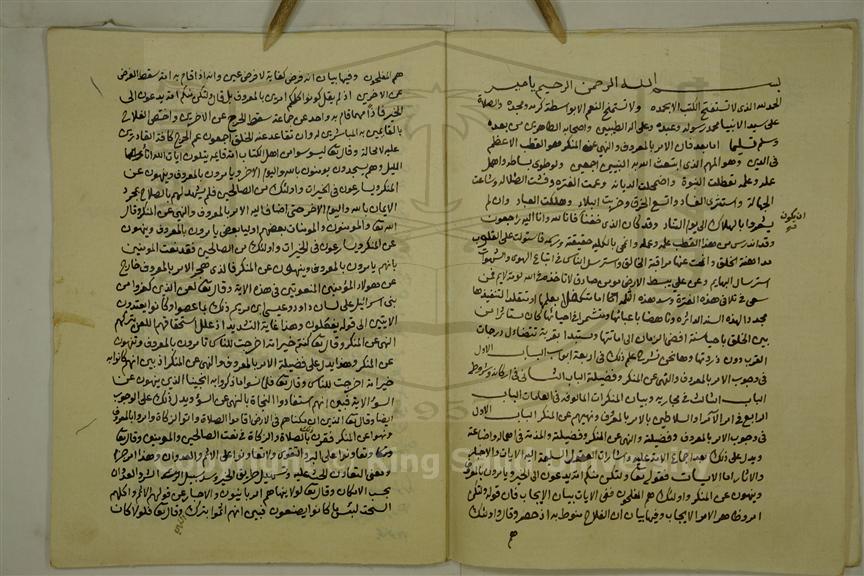 بسم الله الرحمن الرحيم يا معين
الحمد لله الذي لا تستفتح الكتب الا بحمده ولا تستمنح النعم الا بواسطة كرمه ومجده والصلاة
على سيد الانبيا محمد رسوله وعبده وعلى اله الطيبين واصحابه الطاهرين من بعده
وسلم تسليما اما بعد فان الامر بالمعروف والنهي عن المنكر هو القطب الاعظم
في الدين وهو المهم الذي ابتعث الله به النبيين اجمعين ولو طوي بساطه واهمل
علمه وعمله لتعطلت النبوة واضمحلت الديانه وعمت الفتره وفشت الضلاله وشاعت
الجهالة واستشرى الفساد واتسع الخرق وخربت البلاد وهلكت العباد وان لم
يشعروا بالهلاك الى يوم التناد وقد كان الذي خفنا فانا لله وانا اليه راجعون
ان يكون
وقد اندرس من هذا القطب علمه وعمله وانمحى بالكليه حقيقته ورسمه فاستولت على القلوب
مداهنة الخلق وانمحت عنها مراقبة الخالق واسترسل الناس في اتباع الهوى والشهوات
استرسال البهايم وعز على بسيط الارض مومن صادق لا تاخذه في الله لومة لايم فمن
سعى في تلافي هذه الفترة وسد هذه الثلمه اما متكفلا بعملها او متقلدا لتنفيذها
مجددا لهذه السنه الداثره وناهضا باعبائها ومتشمرا في احيائها كان مستاثرا من
بين الخلق باحيا سنة افضى الزمان الى اماتتها ومستبدا بقربة تتضاءل درجات
القرب دون ذروتها وها نحن نشرح علم ذلك في اربعة ابواب الباب الاول
في وجوب الامر بالمعروف والنهي عن المنكر وفضيلته الباب الثاني في اركانه وشروطه
الباب الثالث في مجاريه وبيان المنكرات المالوفه في العادات الباب
الرابع في امر الامرا والسلاطين بالامر بالمعروف ونهيهم عن المنكر الباب الاول
في وجوب الامر بالمعروف وفضيلته والنهي عن المنكر وفضيلته والمذمة في اهماله واضاعته
ويدل على ذلك بعد اجماع الامة عليه واشارات العقول السليمة اليه الايات والاخبار
والاثار اما الايات فقوله تعالى ولتكن منكم امه يدعون الى الخير ويامرون بالمعروف
وينهون عن المنكر واولئك هم المفلحون ففي الايات بيان الايجاب فان قوله ولتكن
امر وظاهر الامر الايجاب وفيها بيان ان الفلاح منوط به اذ حصر وقال واولئك
هم
هم المفلحون وفيها بيان انه فرض كفاية لا فرض عين وانه اذا قام به امة سقط الفرض
عن الاخرين اذ لم يقل كونوا كلكم امرين بالمعروف بل قال ولتكن منكم امة يدعون الى
الخير فاذا مهما قام به واحد من جماعة سقط الحرج عن الاخرين واختص الفلاح
بالقايمين به المباشرين له وان تقاعد عنه الخلق اجمعون عم الحرج كافة القادرين
عليه لا محالة وقال تعالى ليسوا سواء من اهل الكتاب امة قايمة يتلون ايات الله اناء
الليل وهم يسجدون يومنون بالله واليوم الاخر ويامرون بالمعروف وينهون عن
المنكر ويسارعون في الخيرات واولئك من الصالحين فلم يشهد لهم بالصلاح بمجرد
الايمان بالله واليوم الاخر حتى اضاف اليه الامر بالمعروف والنهي عن المنكر وقال
الله تعالى والمومنون والمومنات بعضهم اوليا بعض يامرون بالمعروف وينهون
عن المنكر ويسارعون في الخيرات واولئك من الصالحين فقد نعت المومنين
بانهم يامرون بالمعروف وينهون عن المنكر فالذي هجر الامر بالمعروف خارج
عن هولاء المؤمنين المنعوتين في هذه الاية وقال تعالى لعن الذين كفروا من
بني اسرايل على لسان داود وعيسى ابن مريم ذلك بما عصوا وكانوا يعتدون
الايتين الى قوله يفعلون وهذا غاية التشديد اذ علل استحقاقهم للعن بتركهم
النهي عن المنكر وقال تعالى كنتم خير امة اخرجت للناس تامرون بالمعروف وتنهون
عن المنكر وهذا يدل على فضيلة الامر بالمعروف والنهي عن المنكر اذ بين انهم كانوا به
خير امة اخرجت للناس وقال تعالى فلما نسوا ما ذكروا به انجينا الذين ينهون عن
السوء الاية فبين انهم استفادوا النجاة بالنهي عن السوء ويدل ذلك على الوجوب
ايضا وقال تعالى الذين ان مكناهم في الارض اقاموا الصلاة واتوا الزكاة وامروا بالمعروف
ونهوا عن المنكر فقرن بالصلاة والزكاة في نعت الصالحين والمومنين وقال تعالى
وتعاونوا على البر والتقوى ولا تعاونوا على الاثم والعدوان وهذا امر جزم
ومعنى التعاون الحث عليه وتسهيل طريق الخير وسد سبيل الشر والعدوان
بحسب الامكان وقال تعالى لولا ينهاهم الربانيون والاحبار عن قولهم الاثم واكلهم
السحت لبئس ما كانوا يصنعون فبين انهم اثموا بترك وقال تعالى فلولا كان